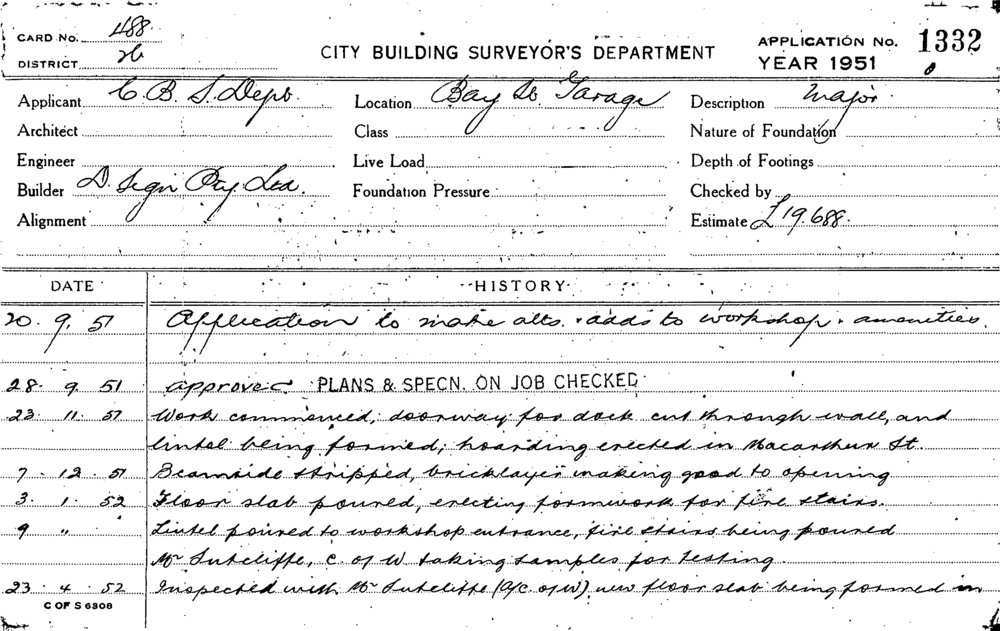 CARD No. 488
DISTRICT 26
CITY BUILDING SURVEYOR'S DEPARTMENT
APPLICATION No. 1332
YEAR 1951
Applicant C. B. S. Dept.
Location Bay St Garage
Description Major
Architect
Class
Nature of Foundation
Engineer
Live Load
Depth of Footings
Builder Pty Ltd.
Foundation Pressure
Checked by
Alignment
Estimate £19.688.
DATE HISTORY
20. 9. 51 Application to make alts. & adds to workshop & amenities.
28. 9. 51 approved PLANS & SPECN. ON JOB CHECKED
23. 11. 51 Work commenced, doorway for dock cut through wall, and
lintel being formed; hoarding erected in Macarthur St.
7. 12. 51 stripped, bricklayer making good to opening
3. 1. 52 Floor slab poured, erecting formwork for fire stairs.
9 " Lintel poured to workshop entrance, fire stairs being poured
Mr Sutcliffe, C. of W. taking samples for testing
23. 4. 52 Inspected with Mr Sutcliffe (C. of W) new floor slab being formed in
C OF S 6308